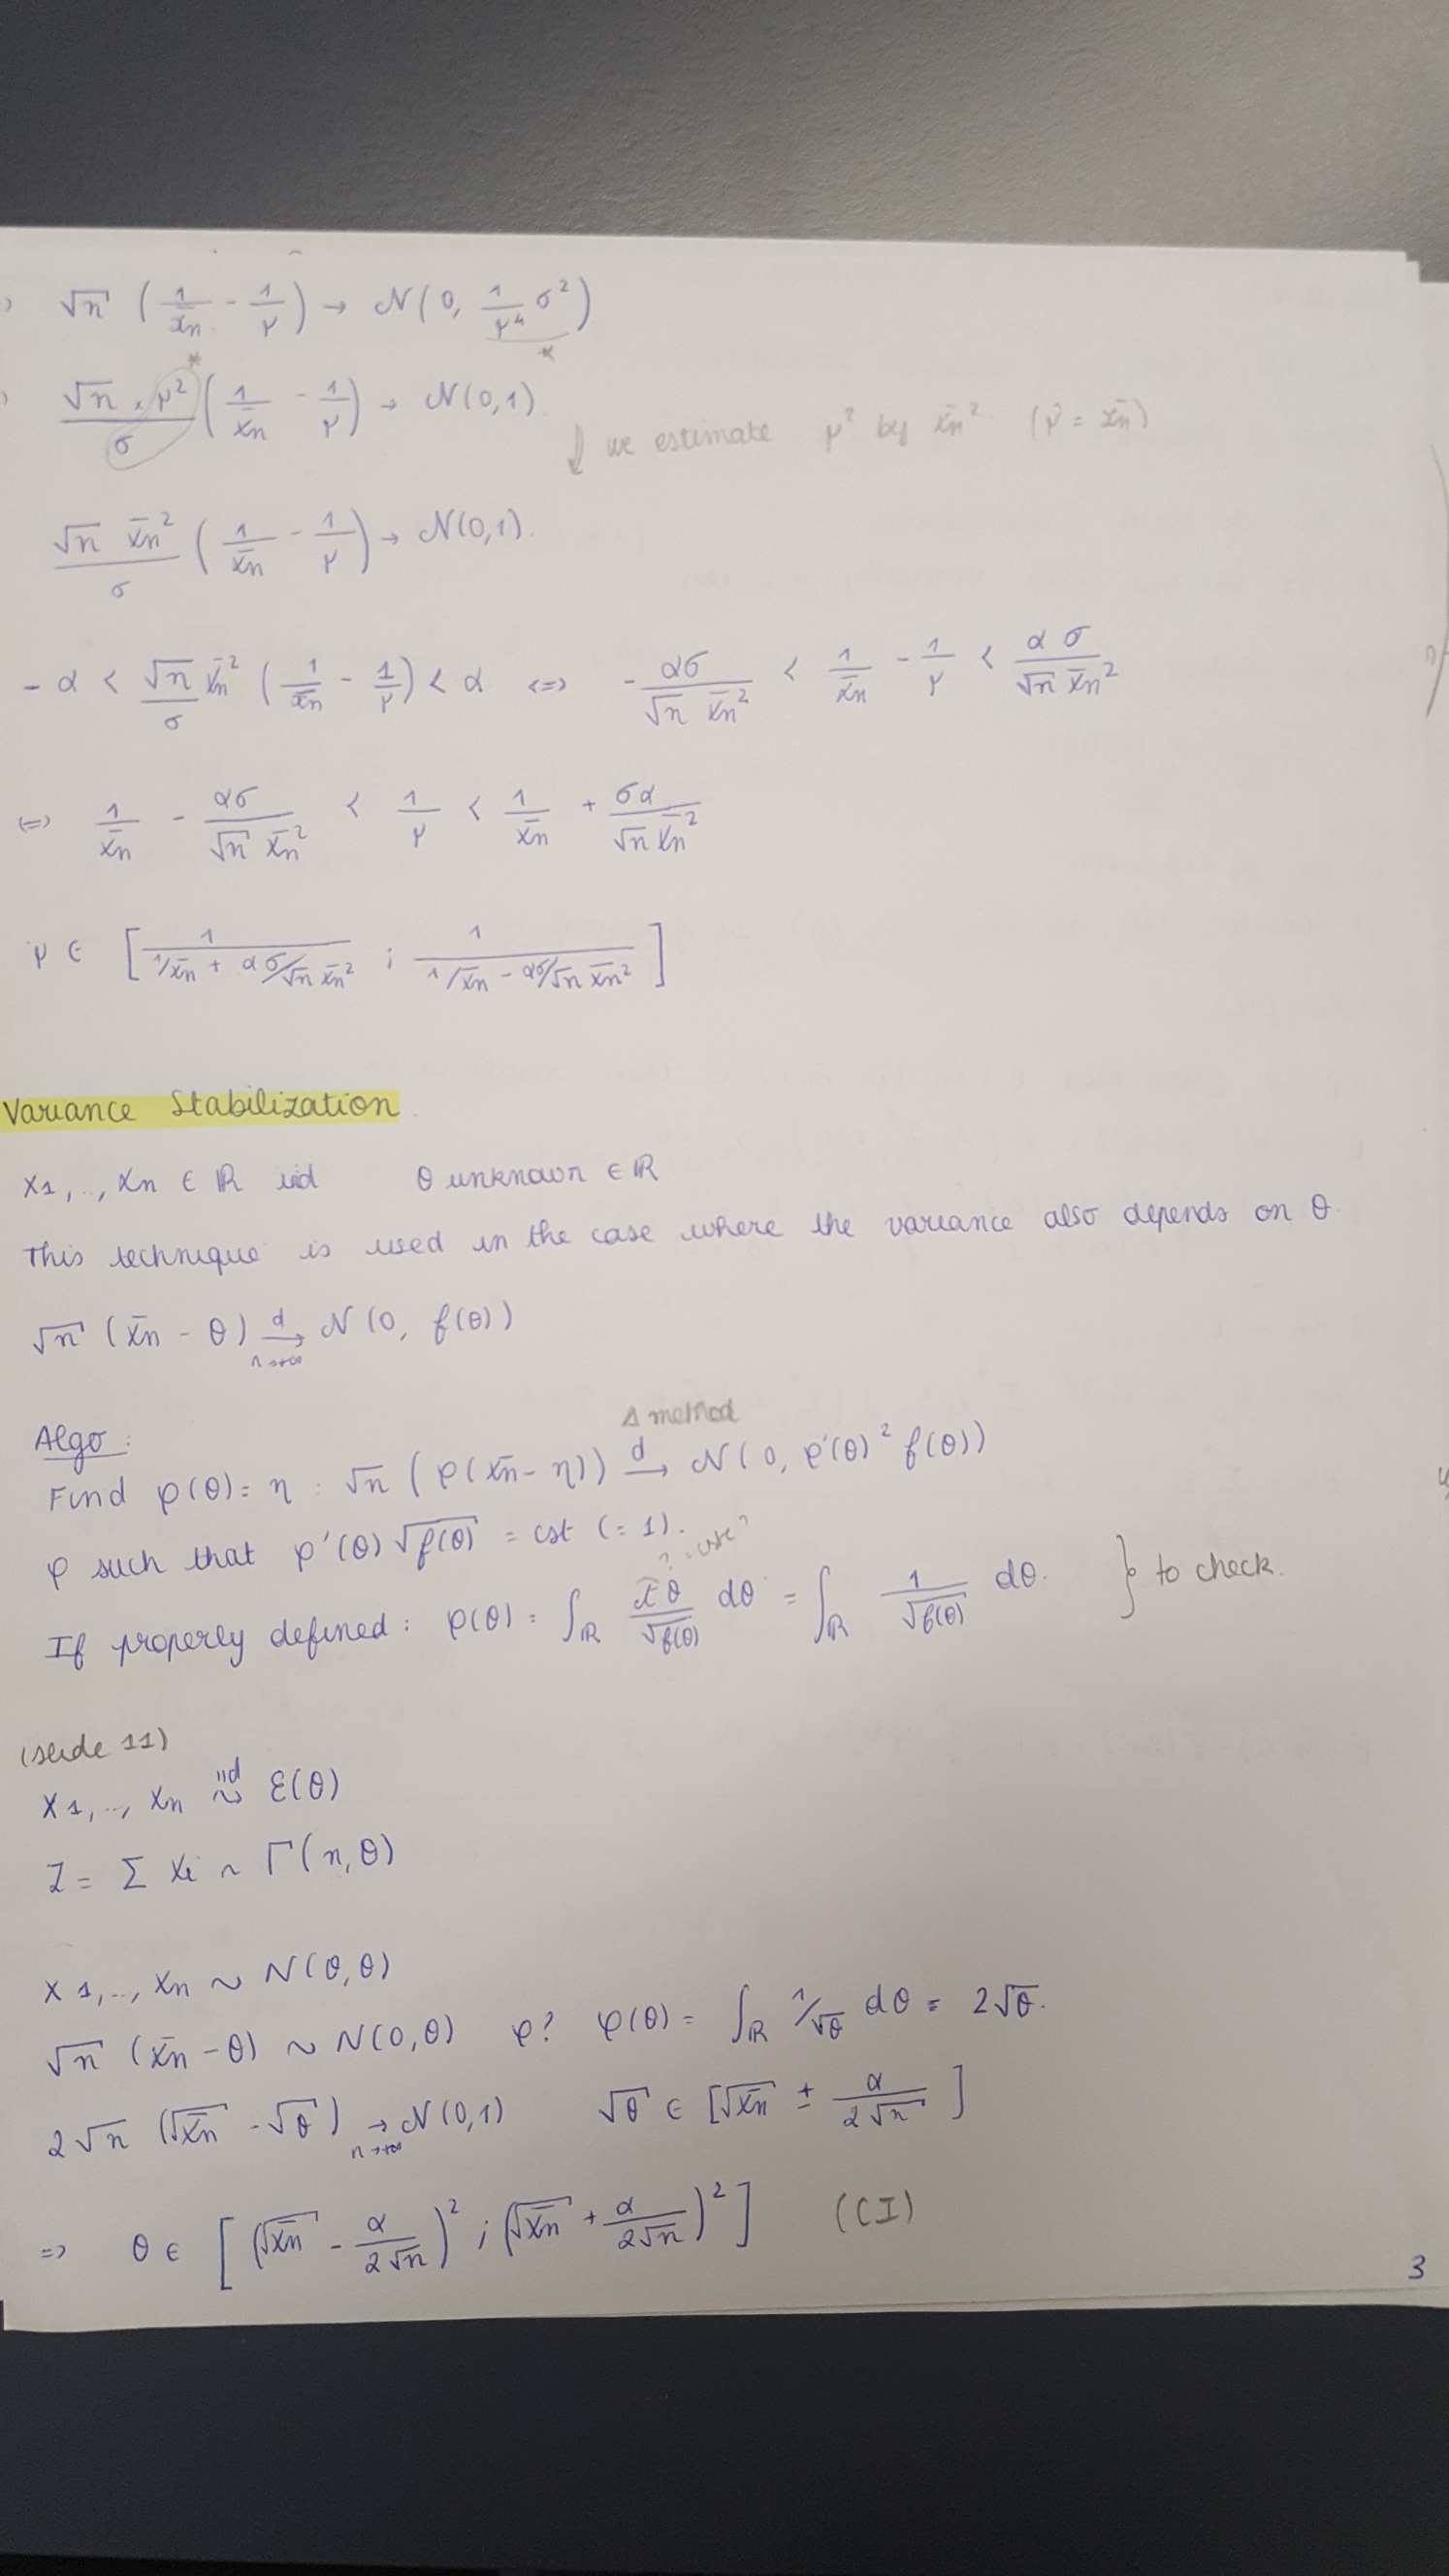 √n (1/x̄n - 1/μ) → N(0, 1/μ⁴ σ²)
*
*
√n × μ²/σ (1/x̄n - 1/μ) → N(0,1)
↓ we estimate μ² by x̄n². (μ̂ = x̄n)
√n x̄n²/σ (1/x̄n - 1/μ) → N(0,1).
-α < √n/σ x̄n² (1/x̄n - 1/μ) < α <=> -ασ/√n x̄n² < 1/x̄n - 1/μ < ασ/√n x̄n²
<=> 1/x̄n - ασ/√n x̄n² < 1/μ < 1/x̄n + σα/√n x̄n²
μ ∈ [1/(1/x̄n + ασ/√n x̄n²) ; 1/(1/x̄n - ασ/√n x̄n²)]
Variance Stabilization
x1, .., xn ∈ ℝ iid θ unknown ∈ ℝ
This technique is used in the case where the variance also depends on θ.
√n (x̄n - θ) →d n→+∞ N(0, f(θ))
Δ method
Algo:
Find φ(θ) = η : √n (φ(x̄n - η)) →d N(0, φ'(θ)² f(θ))
φ such that φ'(θ) √f(θ) = cst (= 1).
If properly defined: φ(θ) = ∫ℝ /√f(θ) dθ = ∫ℝ 1/√f(θ) dθ. } to check.
(slide 11)
x1, .., xn iid ~ Ɛ(θ)
Z = Σ Xi ~ Γ(n, θ)
x1, .., xn ~ N(θ, θ)
√n (x̄n - θ) ~ N(0, θ) φ? φ(θ) = ∫ℝ 1/√θ dθ = 2√θ.
2√n (√x̄n - √θ) → n→+∞ N(0,1) √θ ∈ [√x̄n ± α/2√n]
=> θ ∈ [(√x̄n - α/2√n)² ; (√x̄n + α/2√n)²] (CI)
3